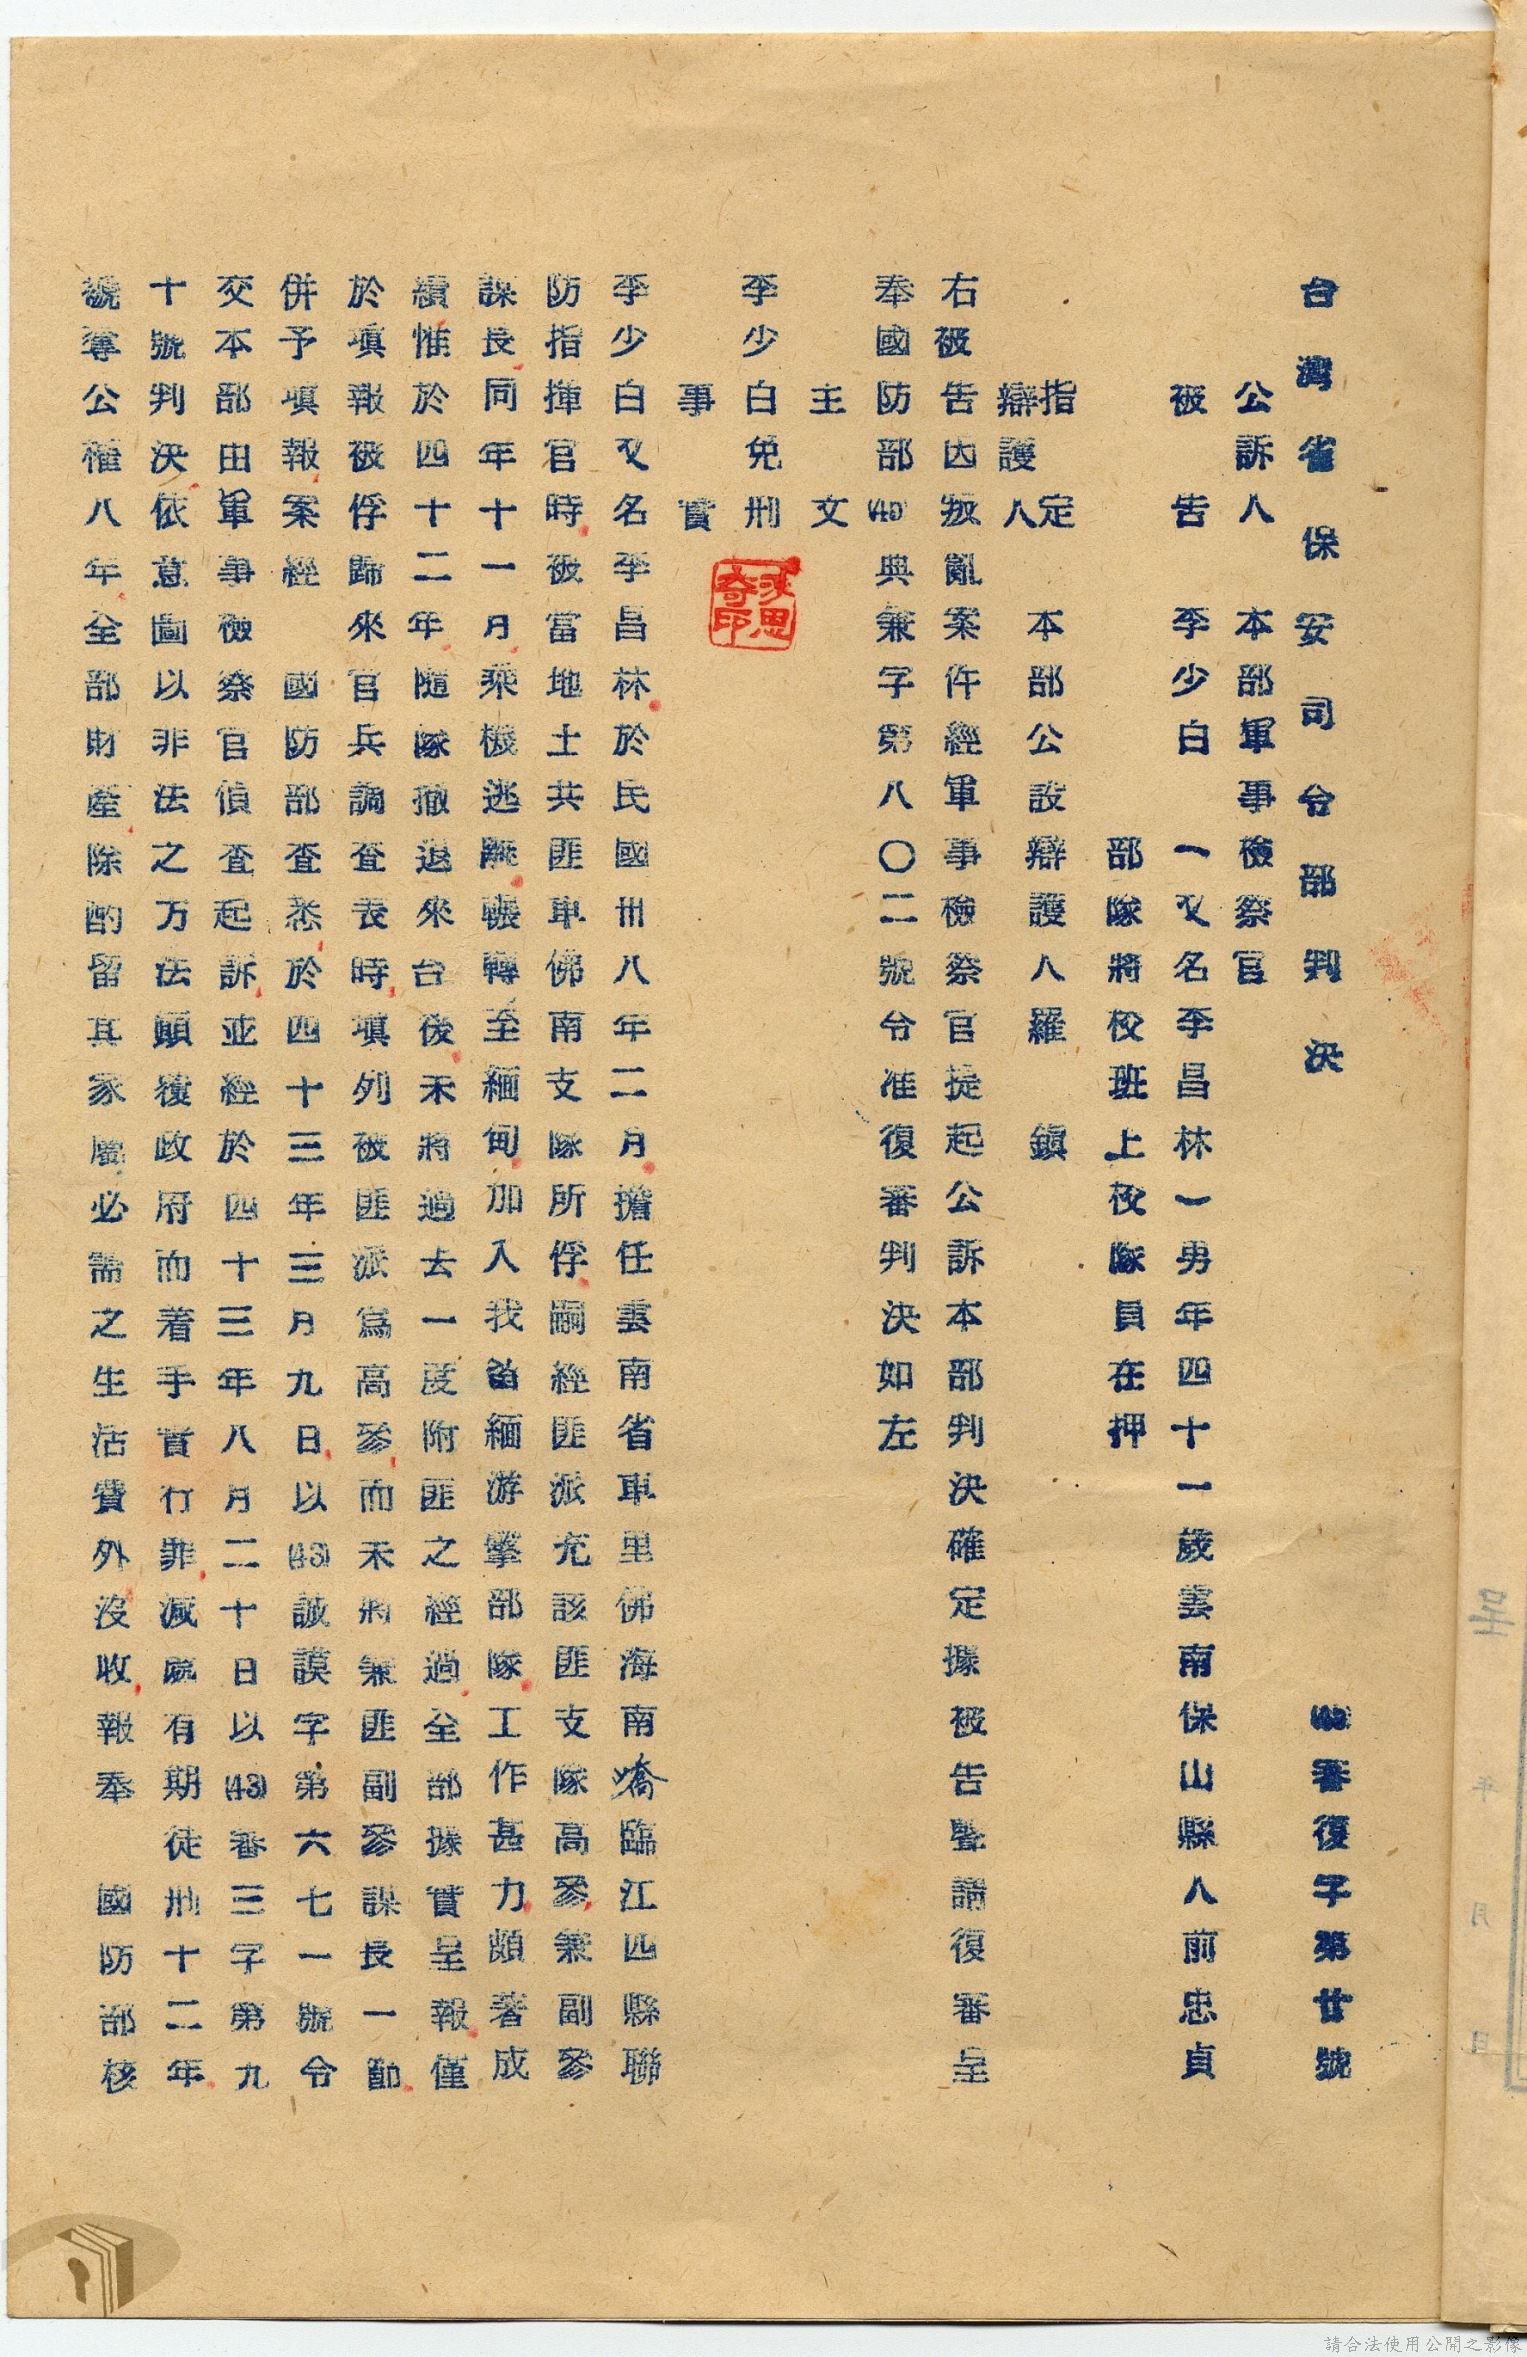 台灣省保安司令部判決
審復字第廿號
公訴人 本部軍事檢察官
被告 李少白 一又名李昌林一男年四十一歲雲南保山縣人前忠貞
部隊將校班上校隊員在押
指定
辯護人 本部公設辯護人羅鎮
右被告因叛亂案件經軍事檢察官提起公訴本部判決確定據被告聲請復審呈
奉國防部(49)典兼字第八〇二號令准復審判決如左
主文
李少白免刑
事實
李少白又名李昌林於民國卅八年二月擔任雲南省車里佛海南嶠臨江四縣聯
防指揮官時被當地土共匪車佛南支隊所俘嗣經匪派充該匪支隊高參兼副參
謀長同年十一月乘機逃脫輾轉至緬甸加入我留緬游擊部隊工作甚力頗著成
績惟於四十二年隨隊撤退來台後未將過去一度附匪之經過全部據實呈報僅
於填報被俘歸來官兵調查表時填列被匪派為高參而未將兼匪副參謀長一節
併予填報案經 國防部查悉於四十三年三月九日以(43)誠謨字第六七一號令
交本部由軍事檢察官偵查起訴並經於四十三年八月二十日以(43)審三字第九
十號判決依意圖以非法之方法顛覆政府而著手實行罪減處有期徒刑十二年
褫奪公權八年全部財產除酌留其家屬必需之生活費外沒收報奉 國防部核
呈
年
月
日
請合法使用公開之影像